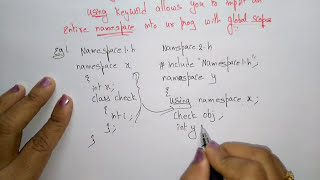 using keyword allows you to import an
entire namespace into ur prog with global scope
Eg1 Namespace1.h
namespace x
{
int x;
class check
{
int i;
};
}
Namspace2.h
# include "Namespace1.h";
namespace y
{
using namespace x;
check obj;
int y